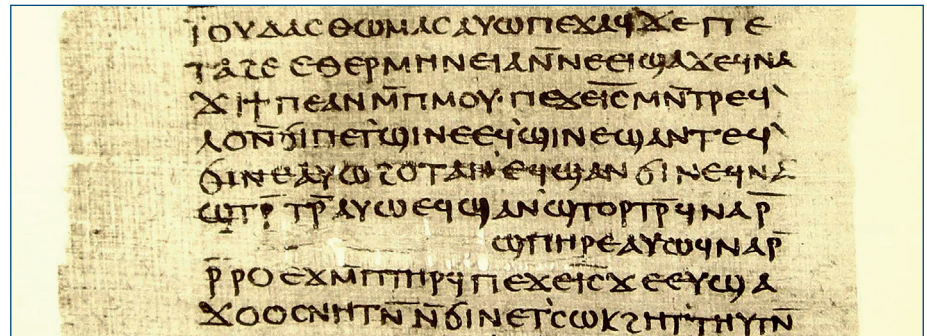 ⲓ̈ⲟⲩⲇⲁⲥⲑⲱⲙⲁⲥⲁⲩⲱⲡⲉϫⲁϥϫⲉⲡⲉ
ⲧⲁϩⲉⲉⲑⲉⲣⲙⲏⲛⲉⲓⲁⲛ̄ⲛⲉⲉⲓϣⲁϫⲉϥⲛⲁ
ϫⲓϯⲡⲉⲁⲛⲙ̄ⲡⲙⲟⲩ·ⲡⲉϫⲉⲓ̅ⲥ̅ⲙⲛ̄ⲧⲣⲉϥ'
ⲗⲟⲛ̄ϭⲓⲡⲉⲧ'ϣⲓⲛⲉⲉϥ'ϣⲓⲛⲉϣⲁⲛⲧⲉϥ'
ϭⲓⲛⲉⲁⲩⲱϩⲟⲧⲁⲛⲉϥϣⲁⲛϭⲓⲛⲉϥⲛⲁ
ϣⲧⲣ̄ⲧⲣ̄ⲁⲩⲱⲉϥϣⲁⲛϣⲧⲟⲣⲧⲣ̄ϥⲛⲁⲣ̄
ϣⲡⲏⲣⲉⲁⲩⲱϥⲛⲁⲣ̄
ⲣ̄ⲣⲟⲉϫⲙ̄ⲡⲧⲏⲣϥⲡⲉϫⲉⲓ̅ⲥ̅ϫⲉⲉⲩϣⲁ
ϫⲟⲟⲥⲛⲏⲧⲛ̄ⲛ̄ϭⲓⲛⲉⲧ'ⲥⲱⲕϩⲏⲧ'ⲧⲏⲩⲧⲛ̄